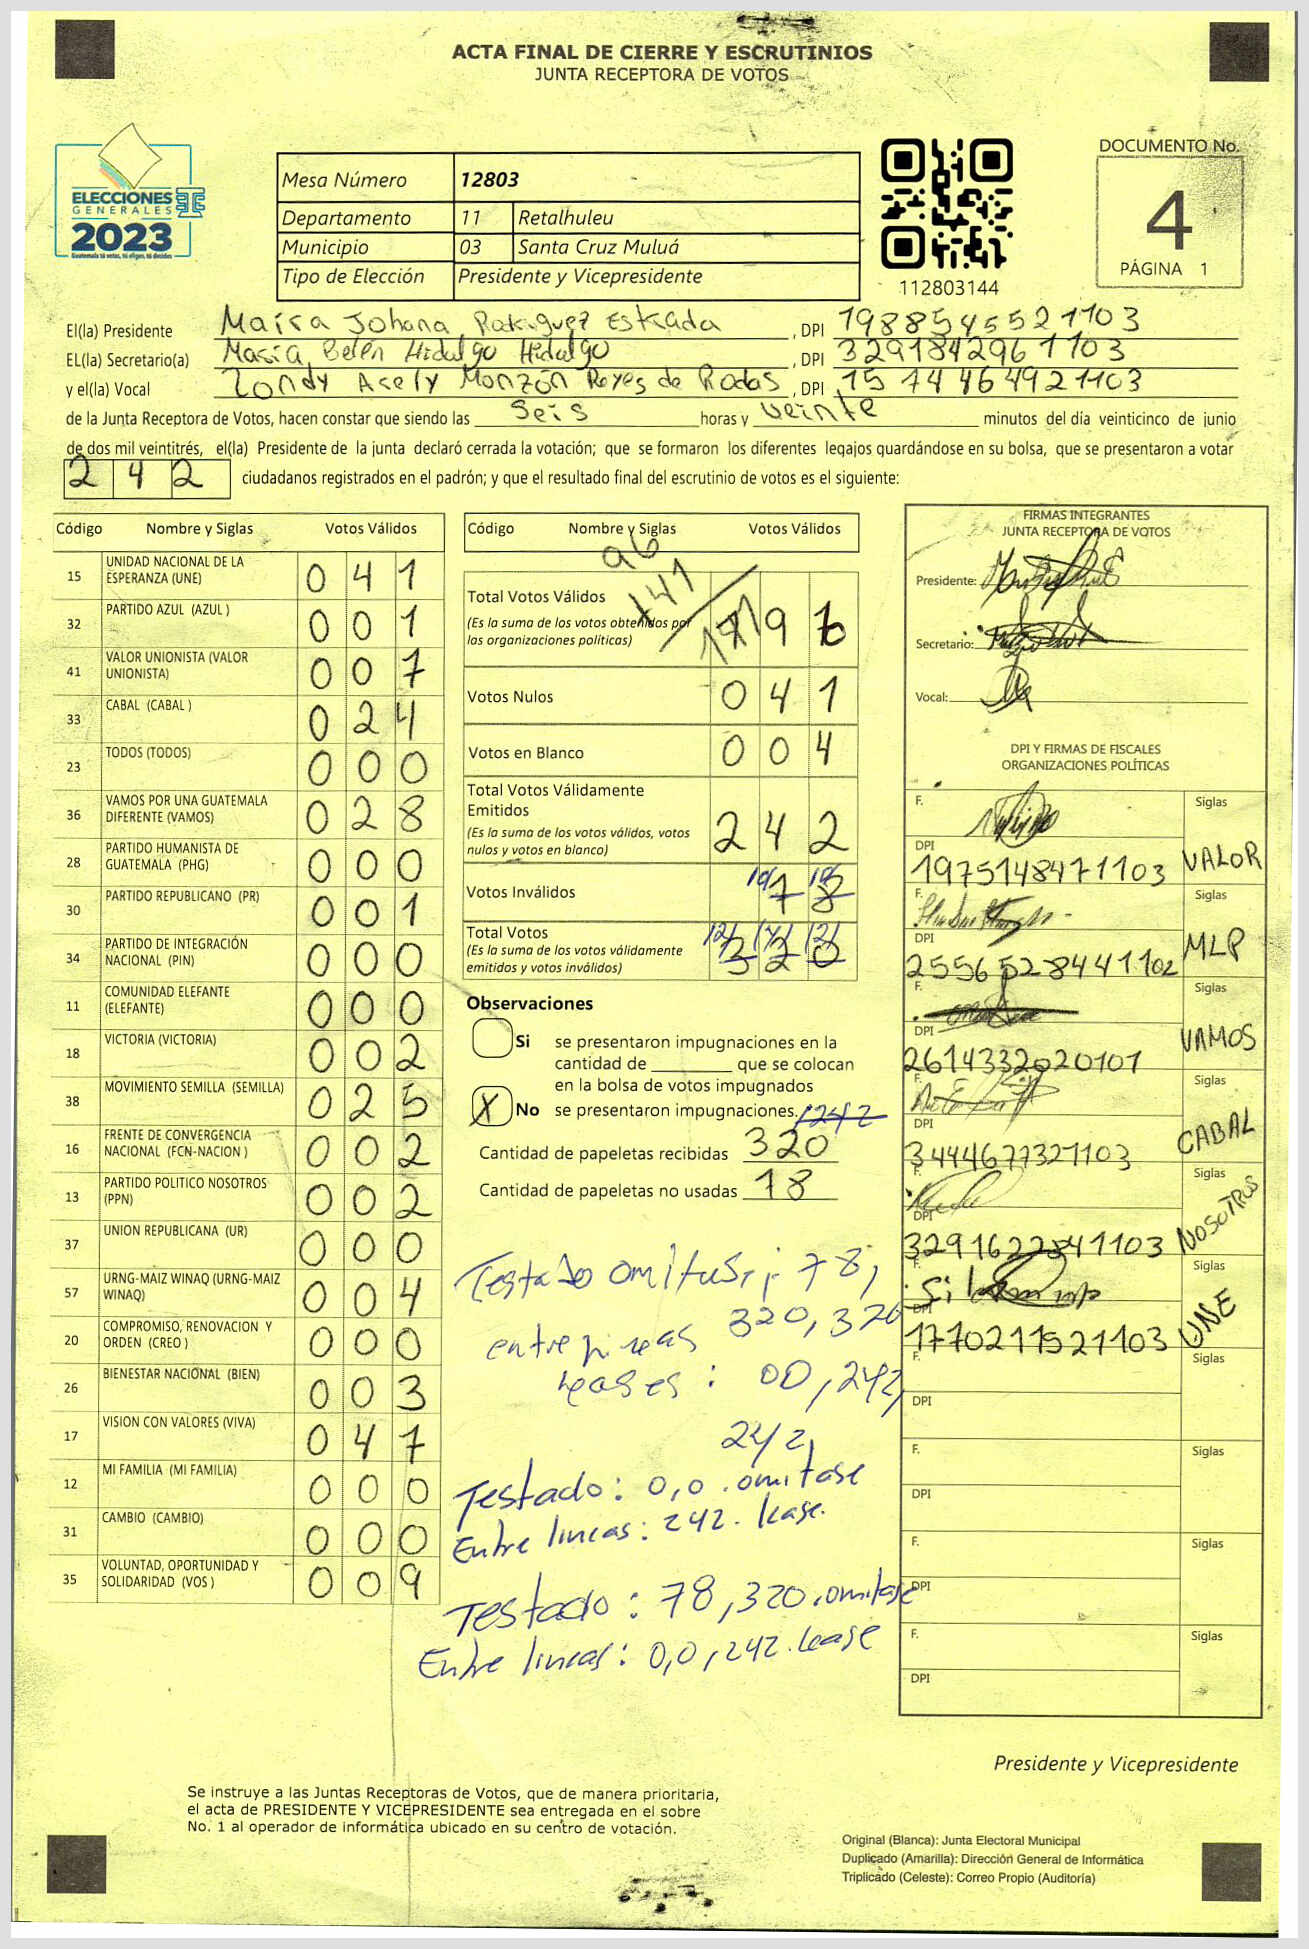 ACTA FINAL DE CIERRE Y ESCRUTINIOS
JUNTA RECEPTORA DE VOTOS
ELECCIONES
GENERALES
2023
Guatemala tú votas, tú eliges, tú decides
Mesa Número 12803
Departamento 11 Retalhuleu
Municipio 03 Santa Cruz Muluá
Tipo de Elección Presidente y Vicepresidente
112803144
DOCUMENTO No.
4
PÁGINA 1
El(la) Presidente Maira Johana Rodriguez Estrada, DPI 1988545521103
EL(la) Secretario(a) Maria Belén Hidalgo Hidalgo, DPI 3291842961103
y el(la) Vocal Zondy Arely Monzón Reyes de Rodas, DPI 1574464921103
de la Junta Receptora de Votos, hacen constar que siendo las seis horas y veinte minutos del día veinticinco de junio
de dos mil veintitrés, el(la) Presidente de la junta declaró cerrada la votación; que se formaron los diferentes legajos guardándose en su bolsa, que se presentaron a votar
242 ciudadanos registrados en el padrón; y que el resultado final del escrutinio de votos es el siguiente:
Código Nombre y Siglas Votos Válidos
15 UNIDAD NACIONAL DE LA ESPERANZA (UNE) 041
32 PARTIDO AZUL (AZUL ) 001
41 VALOR UNIONISTA (VALOR UNIONISTA) 007
33 CABAL (CABAL ) 024
23 TODOS (TODOS) 000
36 VAMOS POR UNA GUATEMALA DIFERENTE (VAMOS) 028
28 PARTIDO HUMANISTA DE GUATEMALA (PHG) 000
30 PARTIDO REPUBLICANO (PR) 001
34 PARTIDO DE INTEGRACIÓN NACIONAL (PIN) 000
11 COMUNIDAD ELEFANTE (ELEFANTE) 000
18 VICTORIA (VICTORIA) 002
38 MOVIMIENTO SEMILLA (SEMILLA) 025
16 FRENTE DE CONVERGENCIA NACIONAL (FCN-NACION ) 002
13 PARTIDO POLITICO NOSOTROS (PPN) 002
37 UNION REPUBLICANA (UR) 000
57 URNG-MAIZ WINAQ (URNG-MAIZ WINAQ) 004
20 COMPROMISO, RENOVACION Y ORDEN (CREO ) 000
26 BIENESTAR NACIONAL (BIEN) 003
17 VISION CON VALORES (VIVA) 047
12 MI FAMILIA (MI FAMILIA) 000
31 CAMBIO (CAMBIO) 000
35 VOLUNTAD, OPORTUNIDAD Y SOLIDARIDAD (VOS ) 009
Código Nombre y Siglas Votos Válidos
96
Total Votos Válidos
(Es la suma de los votos obtenidos por
las organizaciones políticas)
Votos Nulos 041
Votos en Blanco 004
Total Votos Válidamente
Emitidos 242
(Es la suma de los votos válidos, votos
nulos y votos en blanco)
Votos Inválidos 78
Total Votos 320
(Es la suma de los votos válidamente
emitidos y votos inválidos)
Observaciones
Si se presentaron impugnaciones en la
cantidad de ________ que se colocan
en la bolsa de votos impugnados
X No se presentaron impugnaciones. 242
Cantidad de papeletas recibidas 320
Cantidad de papeletas no usadas 78
Testado omitusi: 78,
320, 320
entre lineas
leases: 00, 242,
242,
Testado: 0,0. omitase
Entre lineas: 242. lease.
Testado: 78, 320. omitase
Entre lineas: 0,0, 242. lease
FIRMAS INTEGRANTES
JUNTA RECEPTORA DE VOTOS
Presidente:
Secretario:
Vocal:
DPI Y FIRMAS DE FISCALES
ORGANIZACIONES POLÍTICAS
F. Siglas
DPI 1975148471103 VALOR
F. Siglas
DPI 2556528441102 MLP
F. Siglas
DPI 2614332020101 VAMOS
F. Siglas
DPI 3444677321103 CABAL
F. Siglas
DPI 3291622841103 NOSOTROS
F. Siglas
DPI 1770211521103 UNE
F. Siglas
DPI
F. Siglas
DPI
F. Siglas
DPI
F. Siglas
DPI
Presidente y Vicepresidente
Se instruye a las Juntas Receptoras de Votos, que de manera prioritaria,
el acta de PRESIDENTE Y VICEPRESIDENTE sea entregada en el sobre
No. 1 al operador de informática ubicado en su centro de votación.
Original (Blanca): Junta Electoral Municipal
Duplicado (Amarilla): Dirección General de Informática
Triplicado (Celeste): Correo Propio (Auditoría)